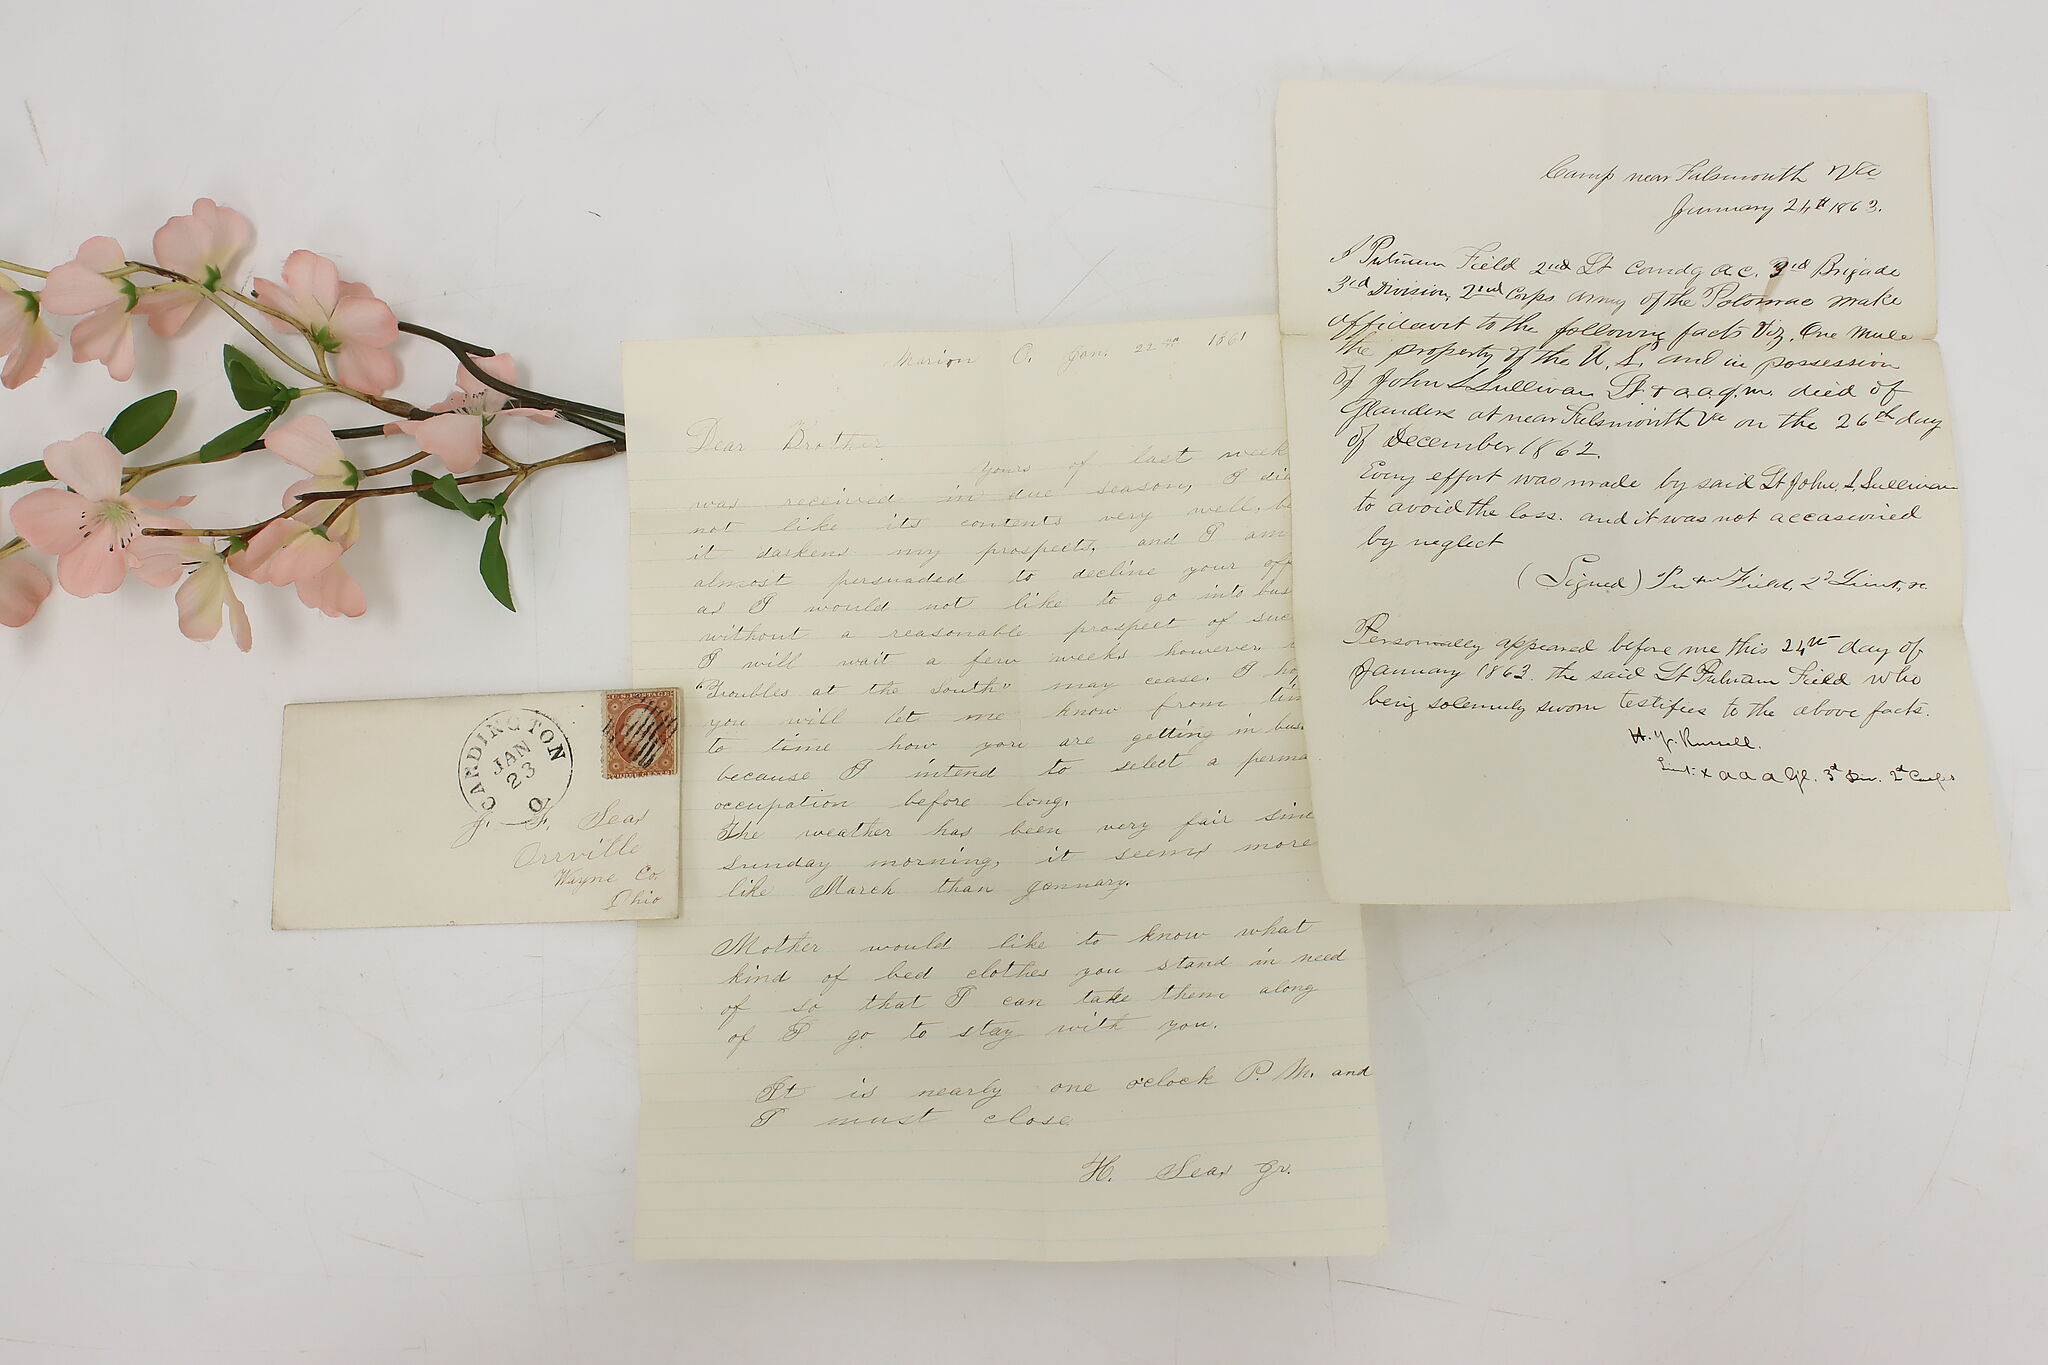 CARDINGTON
JAN
23
O.
U.S. POSTAGE
THREE CENTS
J. F. Sears
Orrville
Wayne Co.
Ohio
Marion O. Jan. 22nd 1861
Dear Brother
Yours of last week
was received in due season, I did
not like its contents very well, be
it darkens my prospects, and I am
almost persuaded to decline your off
as I would not like to go into bus
without a reasonable prospect of suc
I will wait a few weeks however
"Troubles at the South" may cease. I hop
you will let me know from tim
to time how you are getting in bus.
because I intend to select a perma
occupation before long.
The weather has been very fair sinc
sunday morning, it seems more
like March than January.
Mother would like to know what
kind of bed clothes you stand in need
of so that I can take them along
if I go to stay with you.
It is nearly one oclock P.M. and
I must close
H. Sears Jr.
Camp near Falsmouth Va
January 24th 1863.
I Putnam Field 2nd Lt Comdg A C. 3rd Brigade
3rd Division, 2nd Corps Army of the Potomac make
affidavit to the following facts Viz. One Mule
the property of the U. S. and in possession
of John S Sullivan Lt & a.a.q.m. died of
Glanders at near Falsmouth Va on the 26th day
of December 1862.
Every effort was made by said Lt John. S. Sullivan
to avoid the loss. and it was not accasioned
by neglect
(Signed) Putnm Field, 2d Lieut, &c.
Personally appeared before me this 24th day of
January 1863. the said Lt Putnam Field who
being solemnly sworn testifies to the above facts.
H. Y. Russell.
Lieut. & a a a Gl. 3d Div. 2d Corps